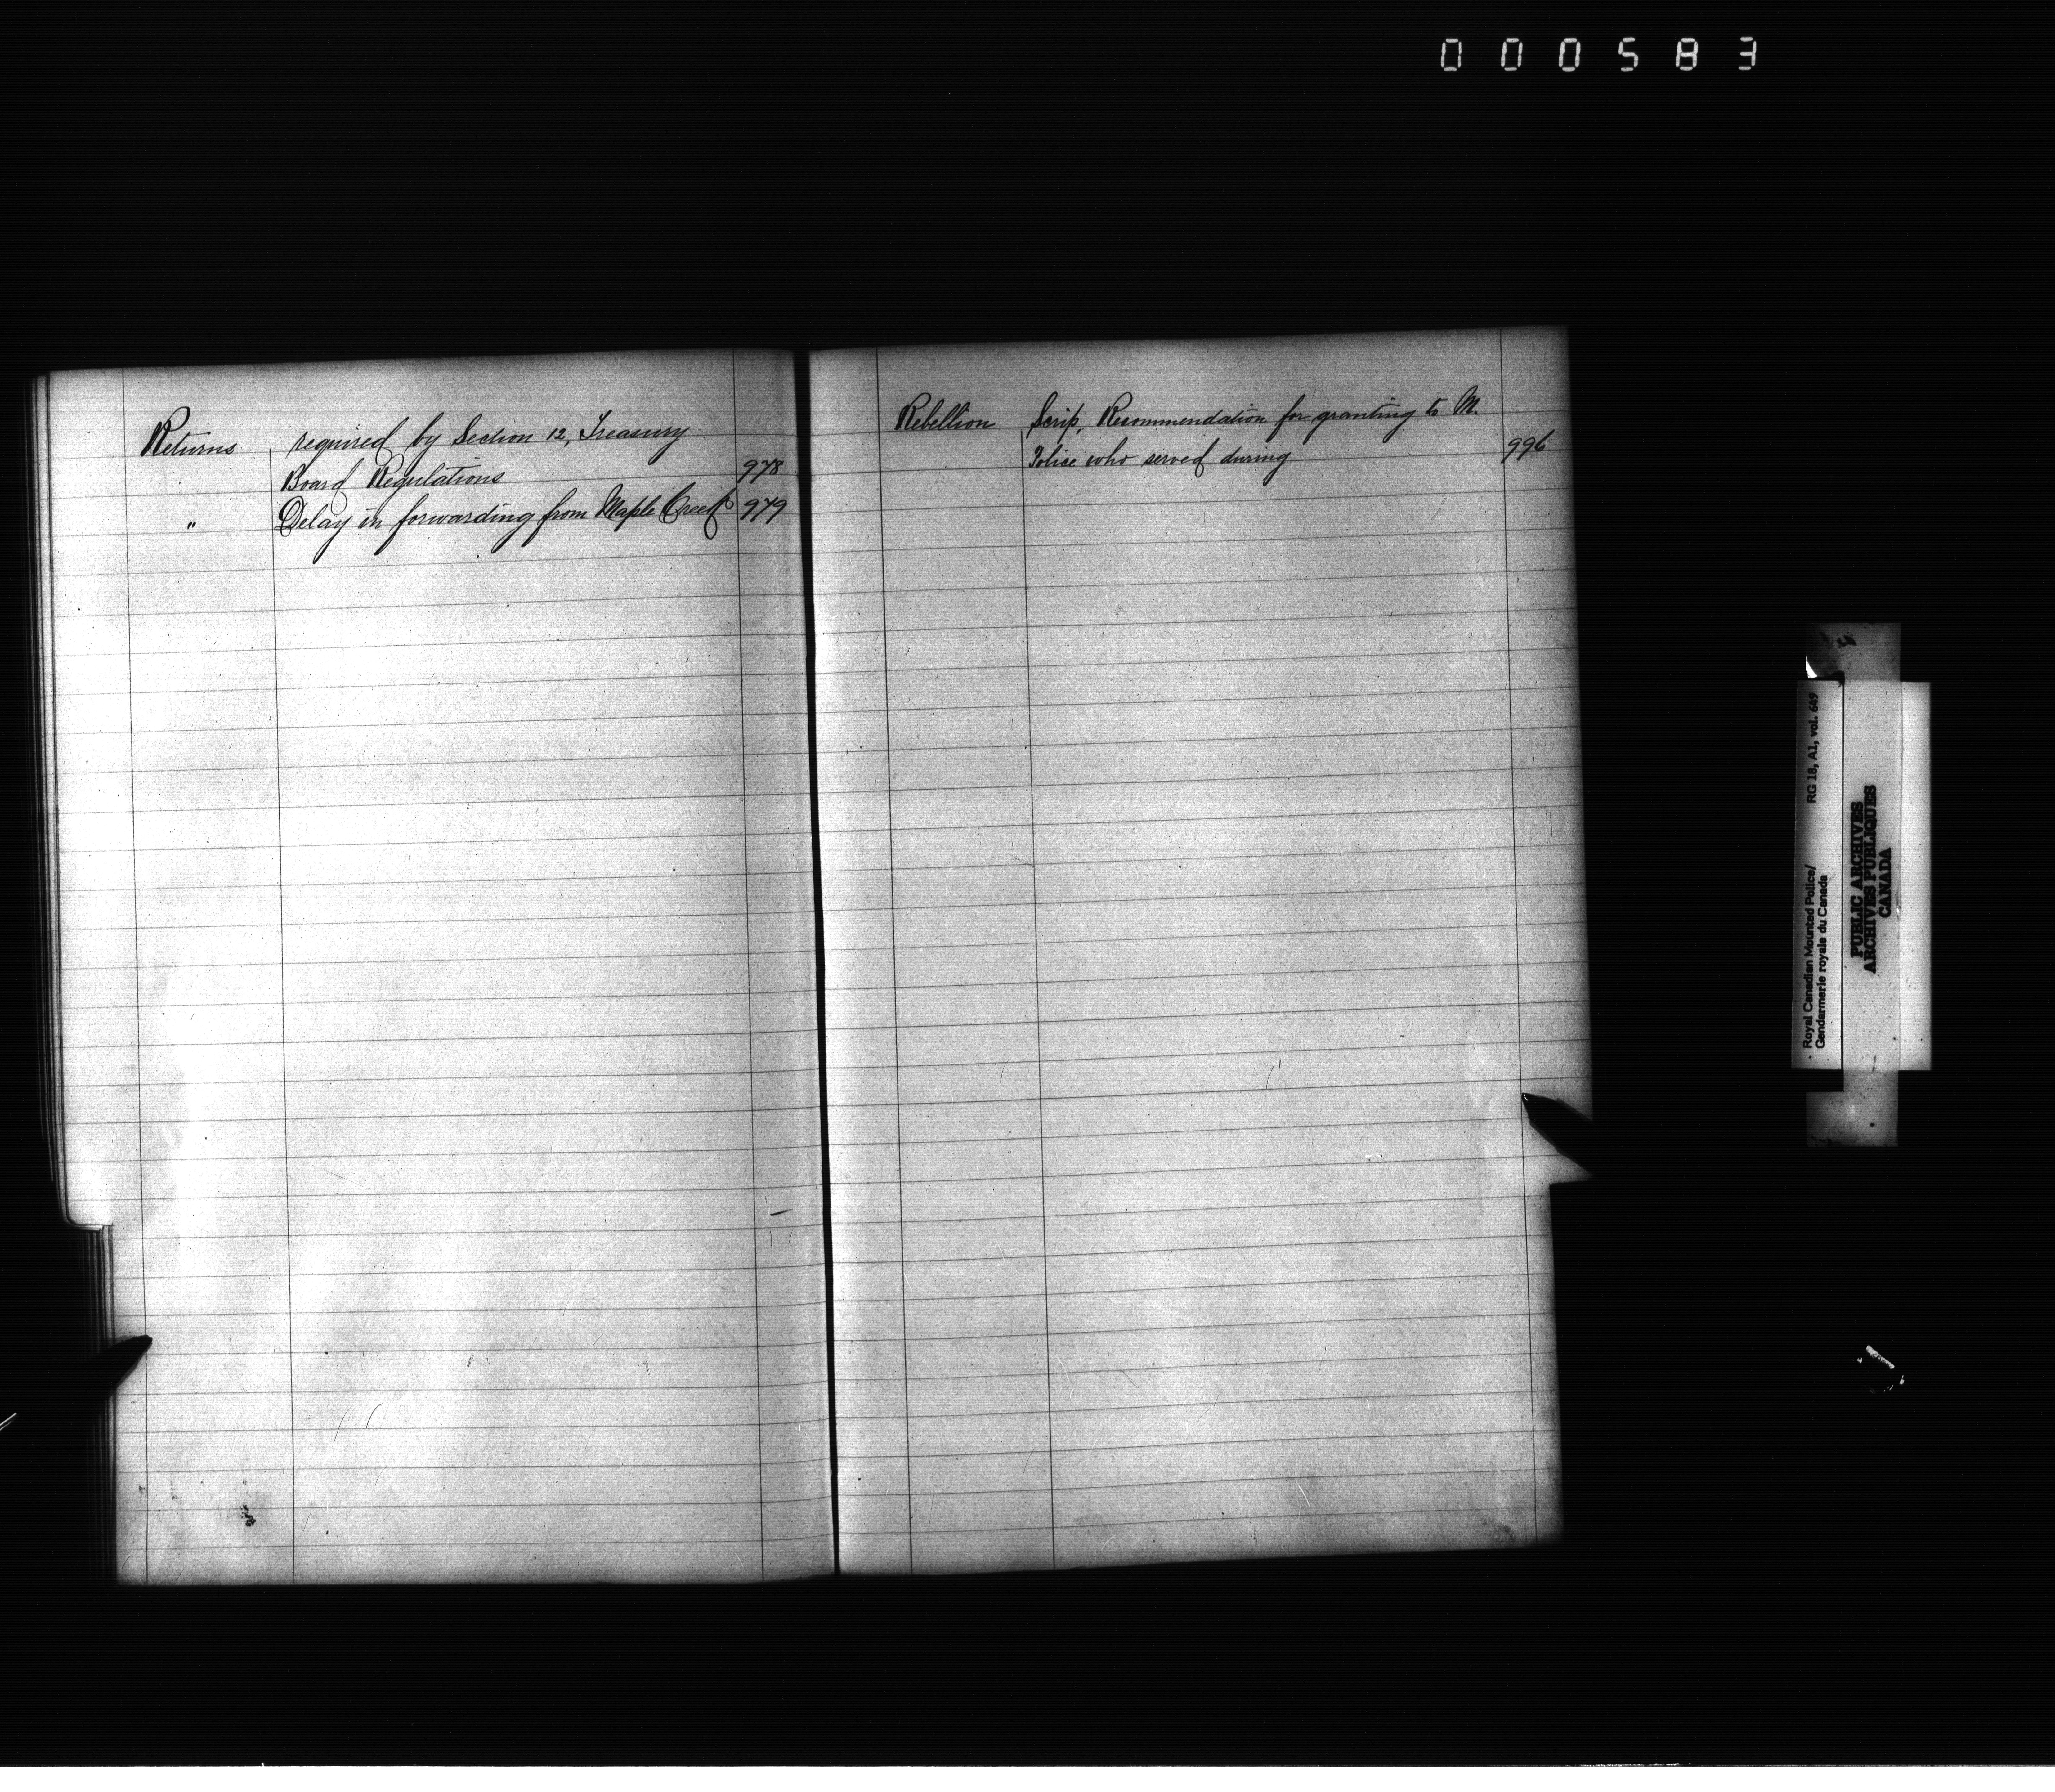 000583
Returns required by Section 12, Treasury
Board Regulations 978
" Delay in forwarding from Maple Creek 979
Rebellion Scrip, Recommendation for granting to M.
Police who served during 996
Royal Canadian Mounted Police/ RG 18, A1, vol. 649
Gendarmerie royale du Canada
PUBLIC ARCHIVES
ARCHIVES PUBLIQUES
CANADA